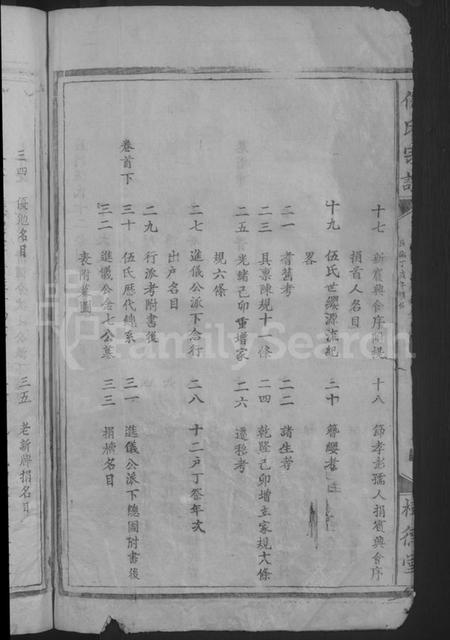 伍氏宗譜
十七 新賓興會序同規 十八 節孝彭孺人捐賓興會序
捐首人名目
十九 伍氏世纓源流紀 二十 簪纓考
畧
二一 耆舊考 二二 諸生考
二三 具禀陳規十一條 二四 乾隆己卯增立家規大條
二五 光緒己卯重增家 二六 遷移考
規六條
二七 進儀公派下合行 二八 十二户丁祭年次
出户名目
二九 行派考附書後
卷首下
三十 伍氏歷代總系 三一 進儀公派下總圖附書後
三二 進儀公合七公墓 三三 捐擴名目
表附墓圖
三四 優勉名目 三五 老新牌捐名目
德
FamilySearch